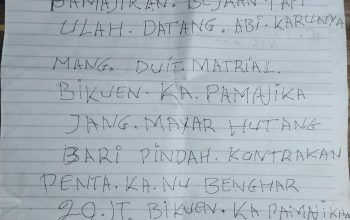 PAMAJIKAN. BEJAAN TAPI
ULAH. DATANG. ABI. KARUNYA
MANG. DUIT. MATRIAL.
BIKUEN. KA. PAMAJIKA
JANG. MAYAR HUTANG
BARI PINDAH. KONTRAKAN
PENTA. KA. NU BENGHAR
20. JT. BIKUEN. KA PAMAJIKAN